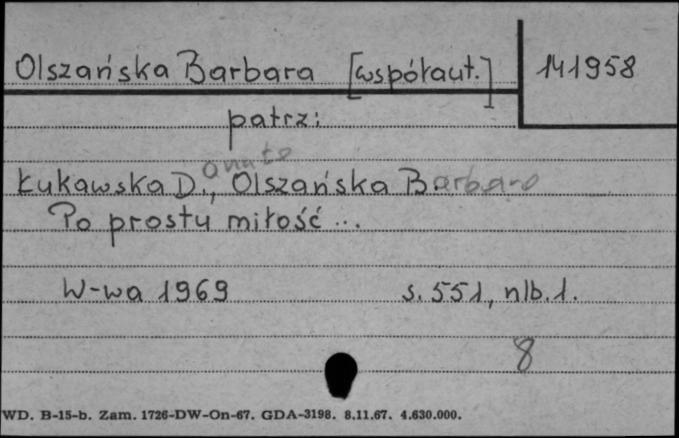 Olszańska Barbara [współaut.] 141958
patrz:
Łukawska D.anuta, Olszańska B.arbara
Po prostu miłość ...
W-wa 1969 s. 551, nlb. 1.
8
WD. B-15-b. Zam. 1726-DW-On-67. GDA-3198. 8.11.67. 4.630.000.